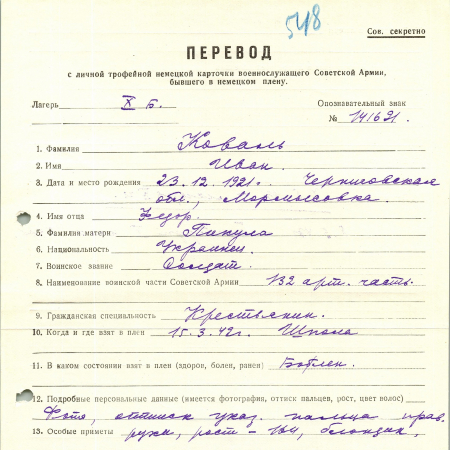 548
Сов. секретно
ПЕРЕВОД
с личной трофейной немецкой карточки военнослужащего Советской Армии,
бывшего в немецком плену.
Лагерь X Б.
Опознавательный знак
№ 141631.
1. Фамилия Коваль
2. Имя Иван.
3. Дата и место рождения 23.12.1921г. Черниговская
обл.,
4. Имя отца Федор.
5. Фамилия матери Пикула
6. Национальность Украинец.
7. Воинское звание Солдат.
8. Наименование воинской части Советской Армии 132 арт. часть.
9. Гражданская специальность Крестьянин.
10. Когда и где взят в плен 15.3.42г. Шпола
11. В каком состоянии взят в плен (здоров, болен, ранен)
12. Подробные персональные данные (имеется фотография, оттиск пальцев, рост, цвет волос)
Фото, оттиск указ. пальца прав.
13. Особые приметы руки, рост - блондин,